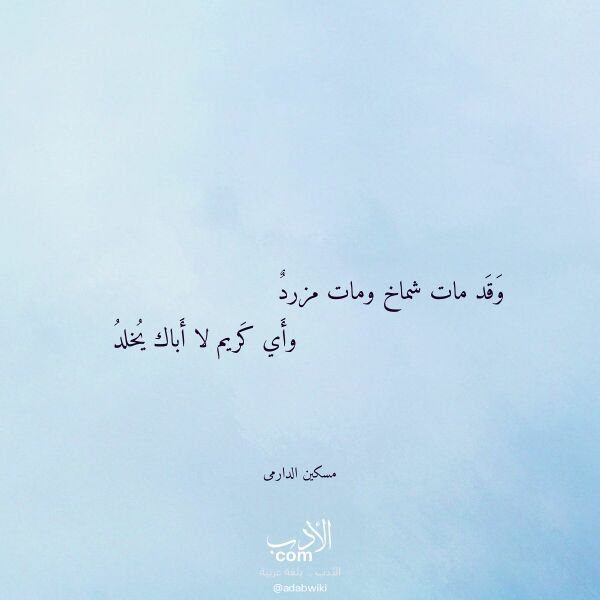 وَقَد مات شماخ ومات مزردٌ
وأَي كَريم لا أَباك يُخلدُ
مسكين الدارمي
الأدب
com
الأدب .. بلغة عربية
@adabwiki